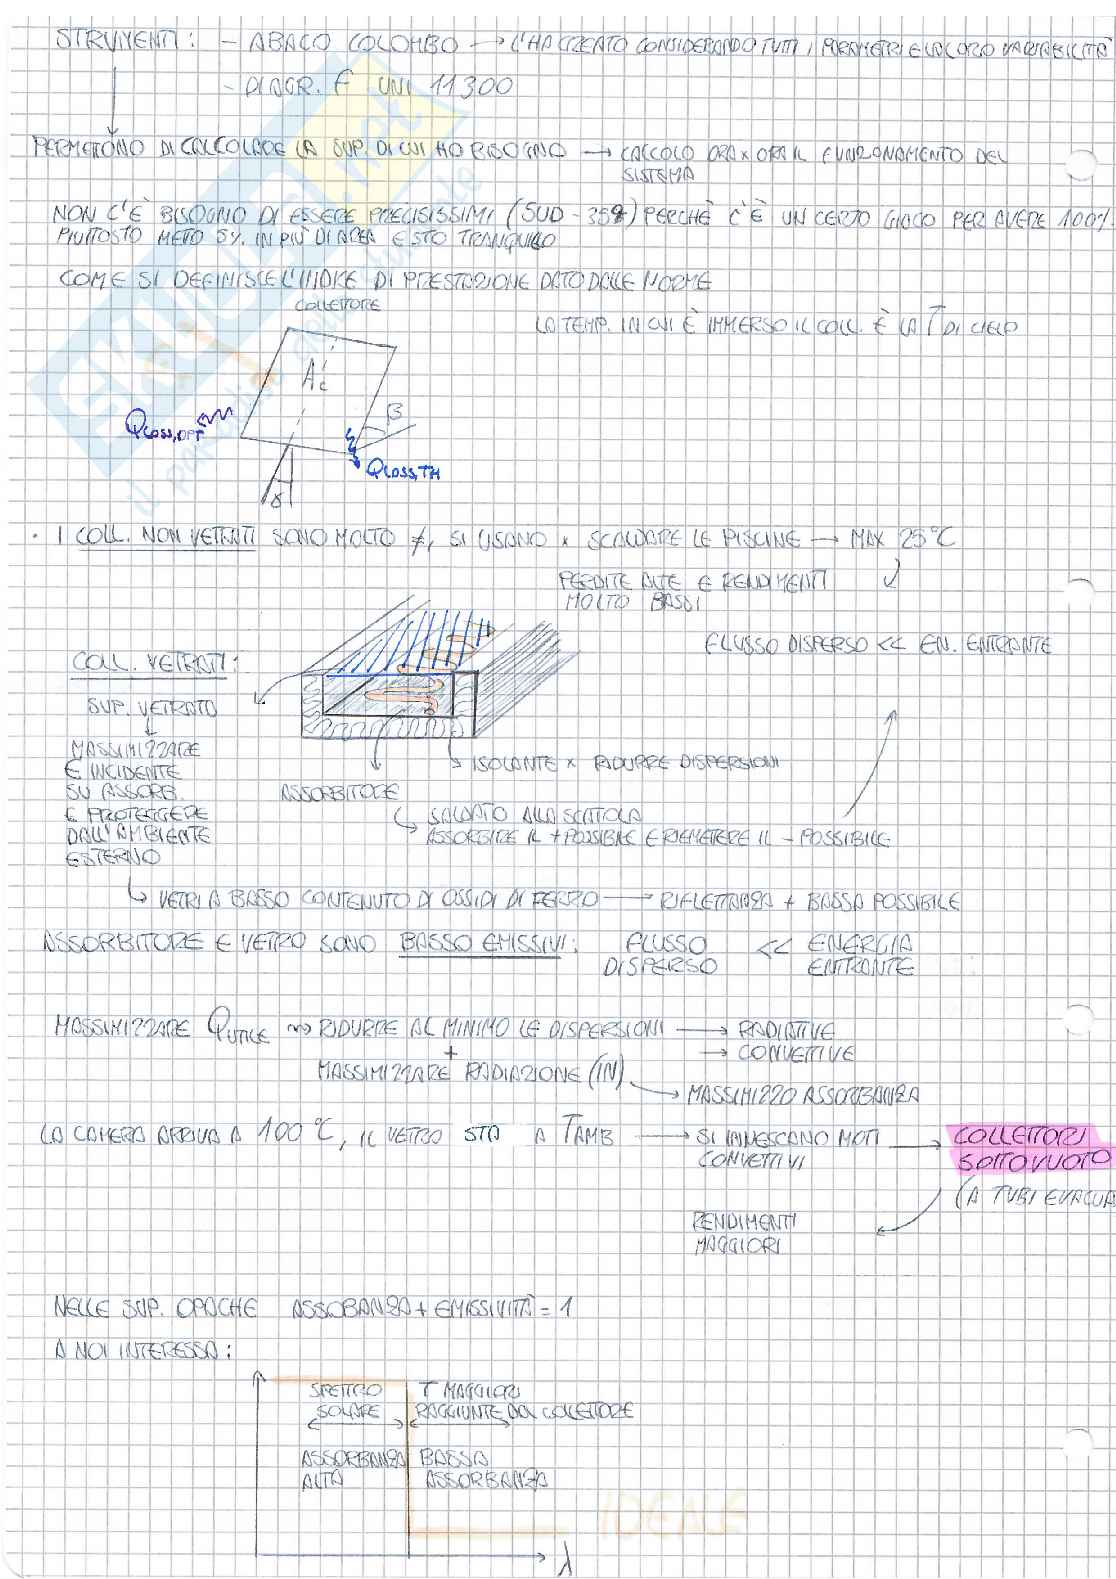 STRUMENTI: - ABACO COLOMBO → L'HA CREATO CONSIDERANDO TUTTI I PARAMETRI E LA LORO VARIABILITÀ
- DIAGR. F UNI 11300
PERMETTONO DI CALCOLARE LA SUP. DI CUI HO BISOGNO → CALCOLO ORA x ORA IL FUNZIONAMENTO DEL
SISTEMA
NON C'È BISOGNO DI ESSERE PRECISISSIMI (SUD - 35°) PERCHÈ C'È UN CERTO GIOCO PER AVERE 100%.
PIUTTOSTO METTO 5% IN PIÙ DI AREA E STO TRANQUILLO
COME SI DEFINISCE L'INDICE DI PRESTAZIONE DATO DALLE NORME
COLLETTORE
LA TEMP. IN CUI È IMMERSO IL COLL. È LA T DI CIELO
Ac
β
QLOSS,OPT
QLOSS,TH
γ
· I COLL. NON VETRATI SONO MOLTO ≠, SI USANO x SCALDARE LE PISCINE → MAX 25°C
PERDITE ALTE E RENDIMENTI
MOLTO BASSI
FLUSSO DISPERSO << EN. ENTRANTE
COLL. VETRATI:
SUP. VETRATA
MASSIMIZZARE
E INCIDENTE
SU ASSORB.
E PROTEGGERE
DALL'AMBIENTE
ESTERNO
ISOLANTE x RIDURRE DISPERSIONI
ASSORBITORE
SALDATO ALLA SCATOLA
ASSORBIRE IL + POSSIBILE E RIEMETTERE IL - POSSIBILE
VETRI A BASSO CONTENUTO DI OSSIDI DI FERRO → RIFLETTANZA + BASSA POSSIBILE
ASSORBITORE E VETRO SONO BASSO EMISSIVI: FLUSSO DISPERSO << ENERGIA ENTRANTE
MASSIMIZZARE QUTILE ⇝ RIDURRE AL MINIMO LE DISPERSIONI → RADIATIVE
→ CONVETTIVE
+
MASSIMIZZARE RADIAZIONE (IN)
MASSIMIZZO ASSORBANZA
LA CAMERA ARRIVA A 100°C, IL VETRO STA A TAMB → SI INNESCANO MOTI CONVETTIVI → COLLETTORI SOTTOVUOTO
(A TUBI EVACUA
RENDIMENTI
MAGGIORI
NELLE SUP. OPACHE ASSOBANZA + EMISSIVITÀ = 1
A NOI INTERESSA:
SPETTRO
SOLARE
T MAGGIORI
RAGGIUNTE DAL COLLETTORE
ASSORBANZA
ALTA
BASSA
ASSORBANZA
IDEALE
λ
SKUOLA.net